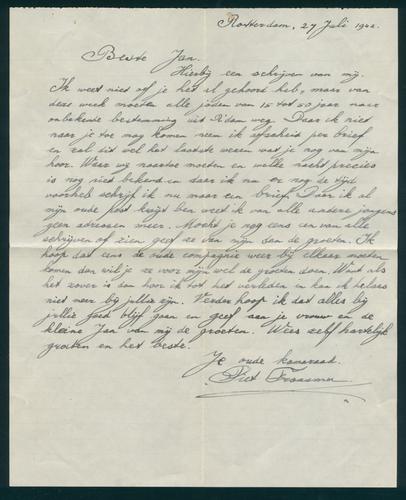 Rotterdam, 27 Juli 1942.
Beste Jan.
Hierbij een schrijven van mij.
Ik weet niet of je het al gehoord heb, maar van
deze week moeten alle joden van 15 tot 50 jaar naar
onbekende bestemming uit R'dam weg. Daar ik niet
naar je toe mag komen neem ik afscheid per brief
en zal dit wel het laatste wezen wat je nog van mijn
hoor. Waar wij naartoe moeten en welke nacht precies
is nog niet bekend en daar ik nu er nog de tijd
voorheb schrijf ik nu maar een brief. Daar ik al
mijn oude post kwijt ben weet ik van alle andere jongens
geen adressen meer. Mocht je nog eens een van alle
schrijven of zien geef ze van mijn dan de groeten. Ik
hoop dat eens de oude compagnie weer bij elkaar moeten
komen dan wil je ze voor mijn wel de groeten doen. Want als
het zover is dan hoor ik tot het verleden en kan ik helaas
niet meer bij jullie zijn. Verder hoop ik dat alles bij
jullie goed blijf gaan en geef aan je vrouw en de
kleine Jan van mij de groeten. Wees zelf hartelijk
groeten en het beste.
Je oude kameraad.
Piet